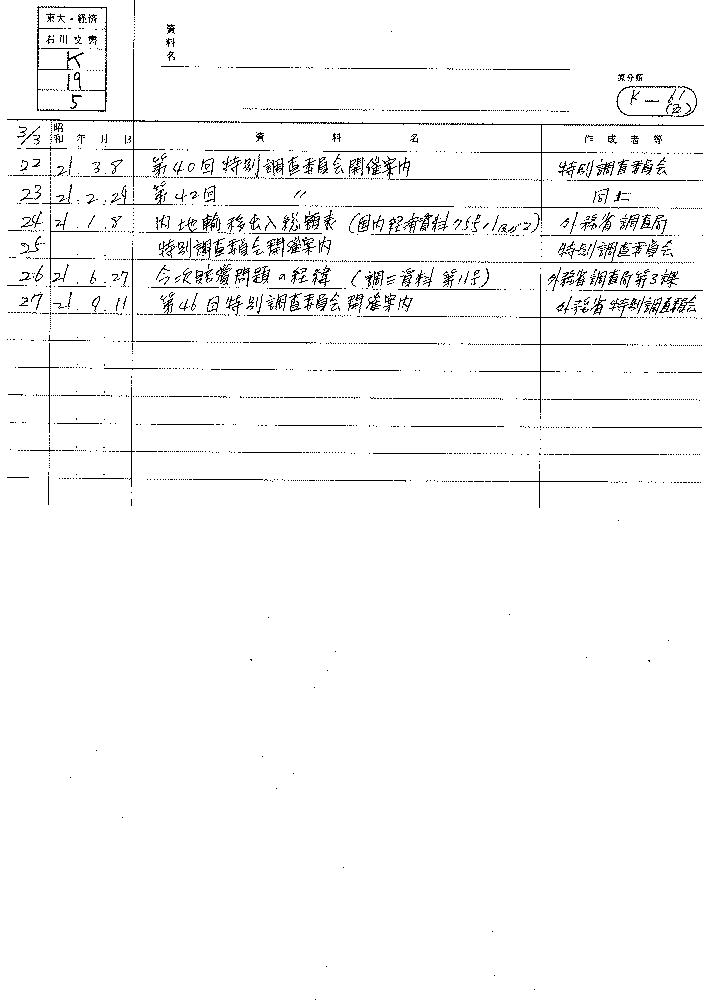 東大・経済
石川文書
K
19
5
資料名
原分類
K－61
(2)
3/3 昭和 年 月 日 資 料 名 作成者等
22 21. 3. 8 第40回特別調査委員会開催案内 特別調査委員会
23 21. 2. 29 第42回 〃 同上
24 21. 1. 8 内地輸移出入総額表 (国内経済資料 外務省調査局
25 特別調査委員会開催案内 特別調査委員会
26 21. 6. 27 今次賠償問題の経緯 (調三資料 第11号) 外務省調査局第3課
27 21. 9. 11 第46回特別調査委員会開催案内 外務省特別調査委員会